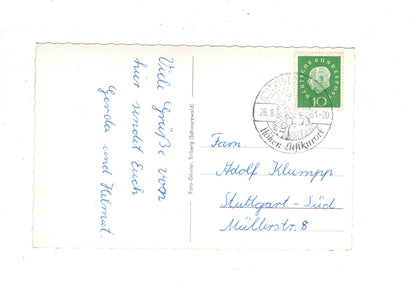 Viele Grüße von
hier sendet Euch
Gerda und Helmut.
Foto-Gissler, Triberg (Schwarzwald)
DEUTSCHE BUNDESPOST
10
Höhen-Luftkurort
Fam.
Adolf Klumpp
Stuttgart-Süd
Müllerstr. 8